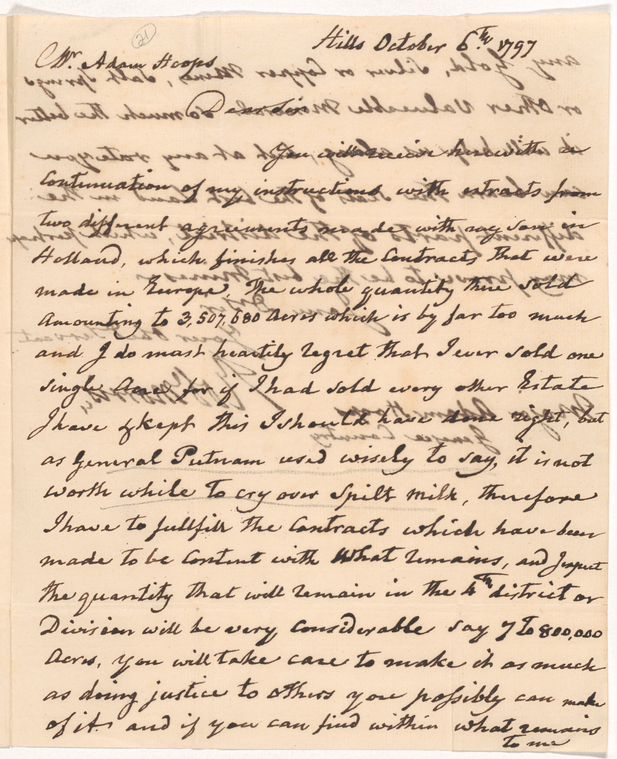 21
Hills October 6.th 1797
Mr. Adam Hoops
Dear Sir
You will receive herewith a
Continuation of my instructions with extracts from
two different agreements made with my son in
Holland, which finishes all the Contracts that were
made in Europe. The whole quantity there sold
amounting to 3,507,680 Acres which is by far too much
and I do most heartily regret that I ever sold one
single Acre, for if I had sold every other Estate
I have & kept this I should have done right, but
as General Putnam used wisely to say, it is not
worth while to cry over Spilt milk, therefore
I have to fullfill the Contracts which have been
made to be Content with What remains, and I expect
the quantity that will remain in the 4th district or
Division will be very Considerable say 7 to 800,000
Acres, you will take care to make it as much
as doing justice to others you possibly can make
of it and if you can find within what remains
to me